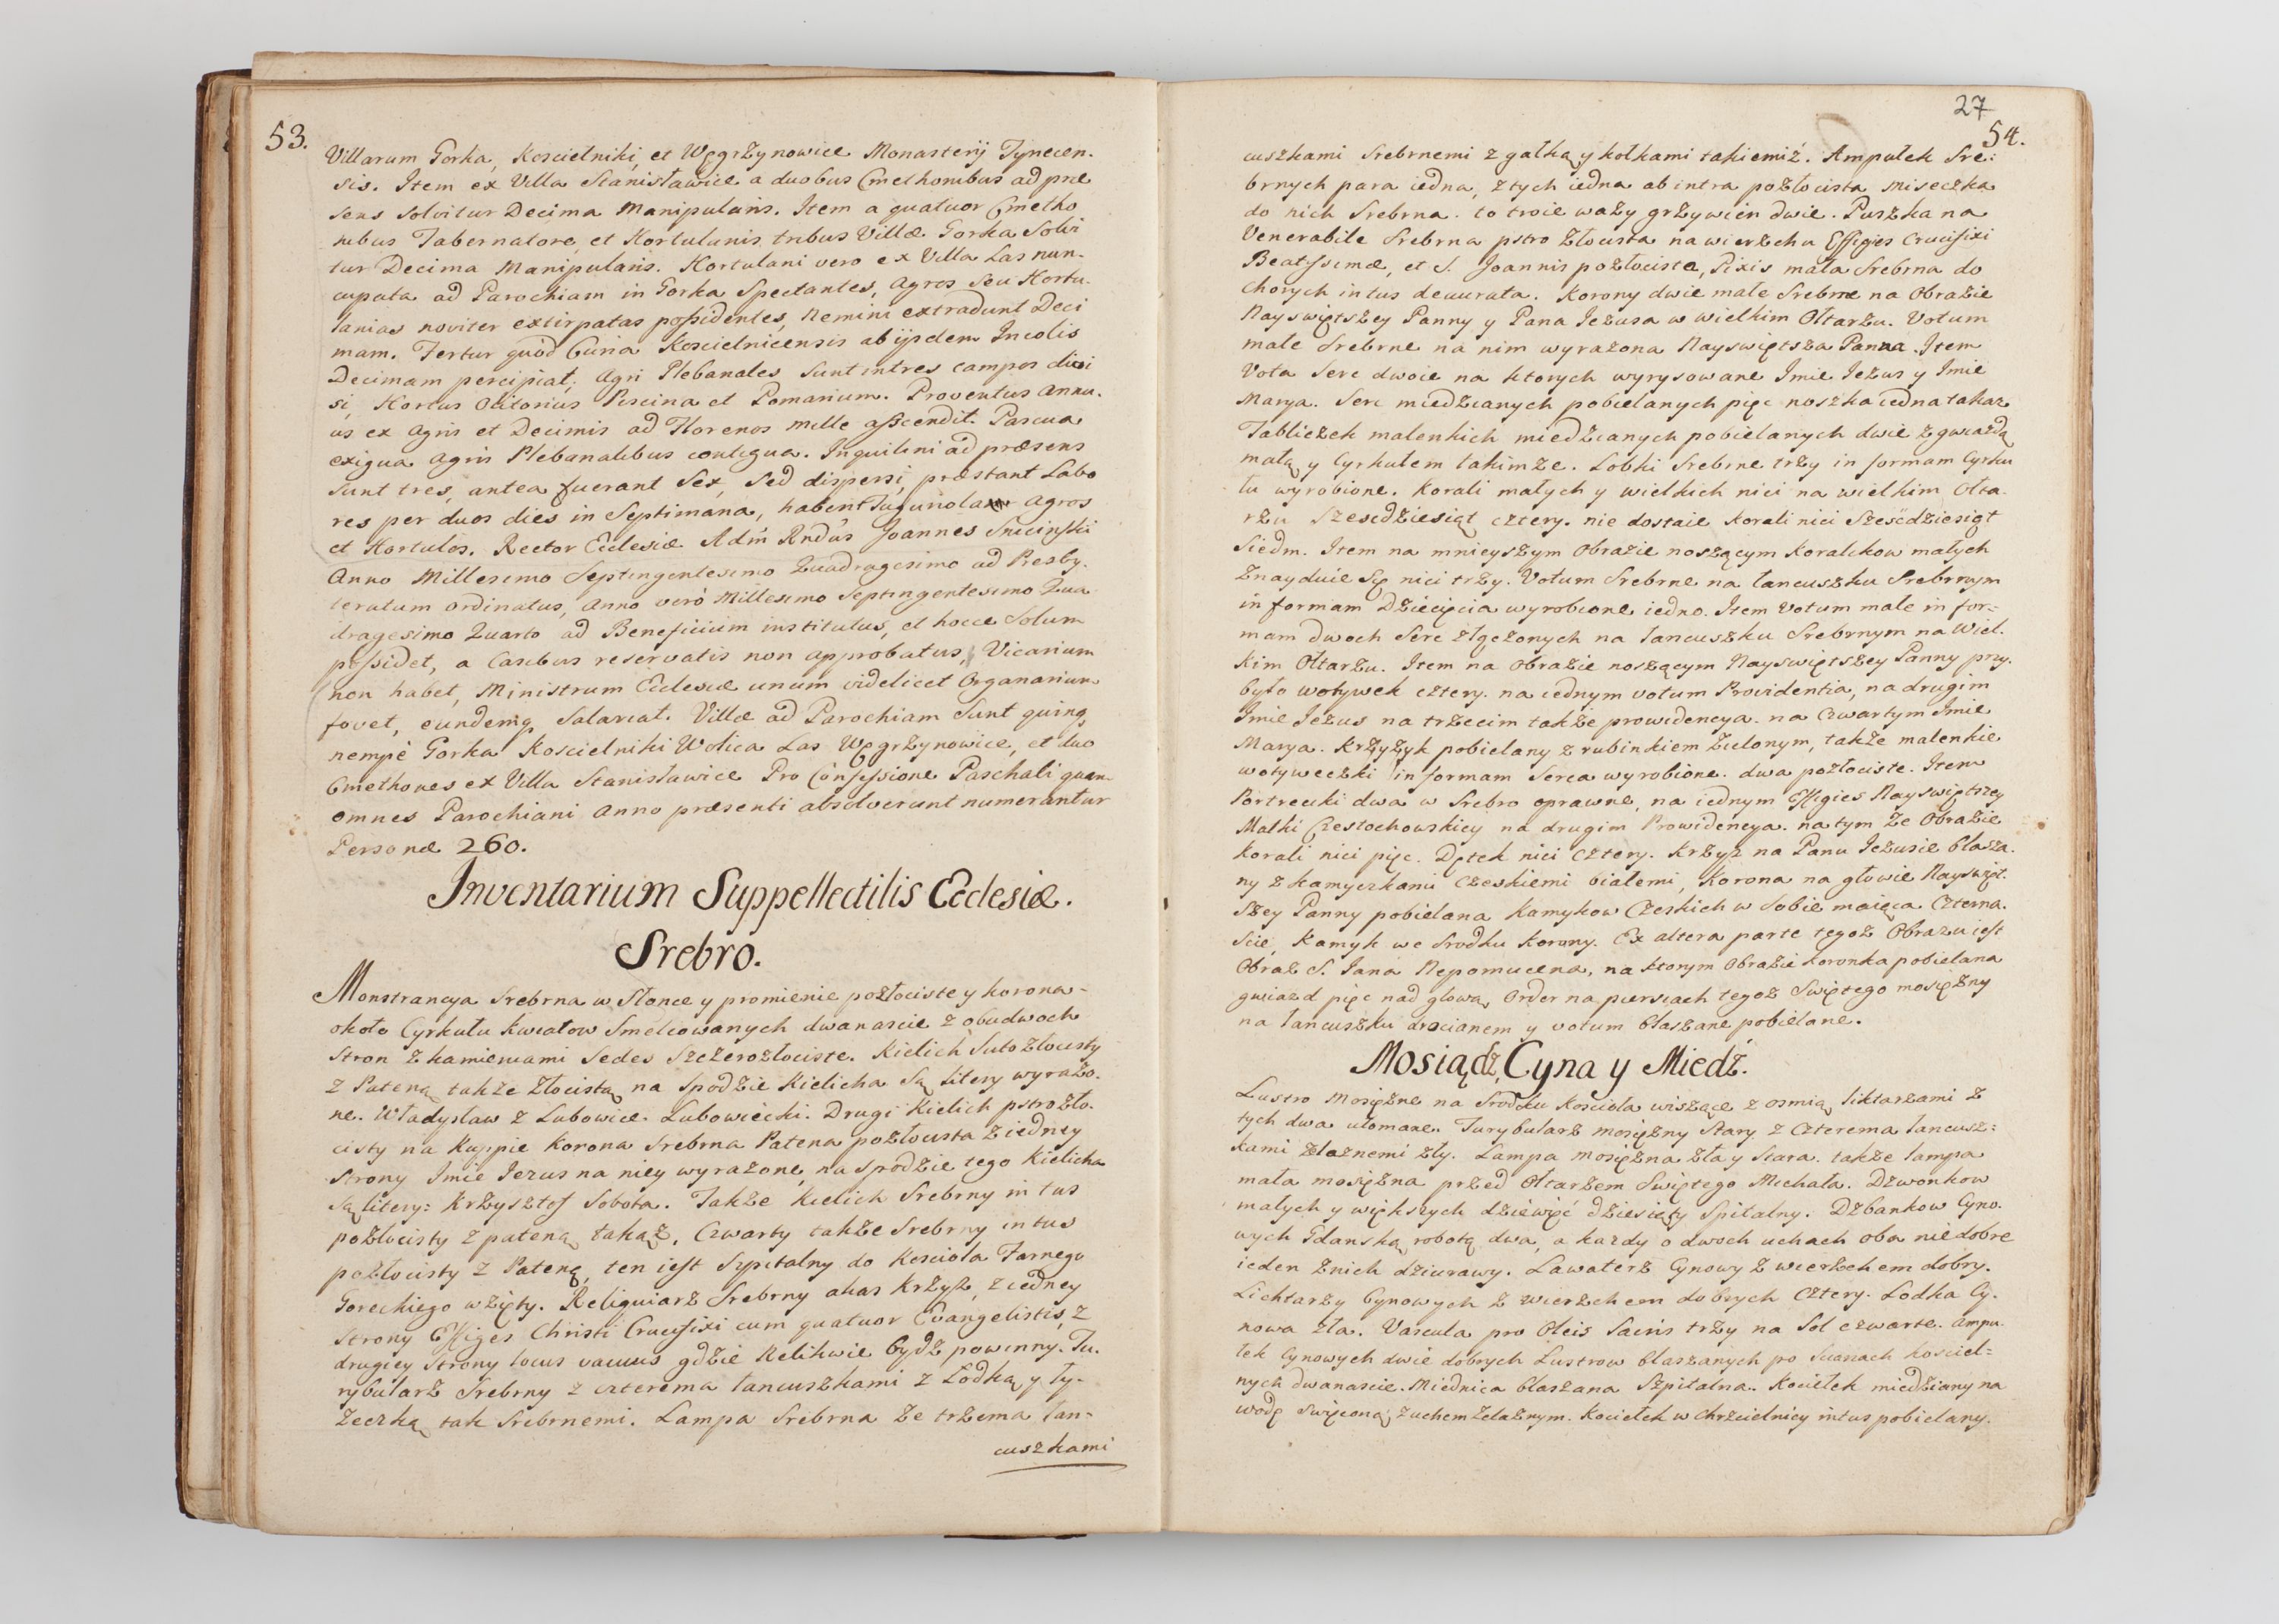 53.
Villarum Gorka, Koscielniki, et Węgrzynowice Monasterij Tynecen-
sis. Item ex Villa Stanisławice a duobus Cmethonibus ad præ
sens solvitur Decima Manipularis. Item a quatuor Cmetho
nibus Tabernatore, et Hortulanis tribus Villæ Gorka Solvi
tur Decima Manipularis. Hortulani vero ex Villa Las nun-
cupata ad Parochiam in Gorka Spectantes, agros Seu Hortu-
lanias noviter extirpatas possidentes, Nemini extradunt Deci
mam. Fertur quòd Curia Koscielnicensis ab ijsdem Incolis
Decimam percipiat; Agri Plebanales Sunt in tres campos divi
si, Hortus Olitorius Piscina et Pomarium. Proventus Annu-
us ex Agris et Decimis ad Florenos Mille asscendit. Pascua
exigua Agris Plebanalibus contigua. Inquilini ad præsens
Sunt tres, antea fuerant Sex, Sed dispersi, præstant Labo
res per duos dies in Septimana, habent agros
et Hortulos. Rector Ecclesiæ Adm Rndus Joannes
Anno Millesimo Septingentesimo Quadragesimo ad Presby-
teratum ordinatus, Anno verò Millesimo Septingentesimo Qua
dragesimo Quarto ad Beneficium institutus, et hocce Solum
possidet, a Casibus reservatis non approbatus, Vicarium
non habet, Ministrum Ecclesiæ unum videlicet Organarium
fovet, eundemq Salariat. Villæ ad Parochiam Sunt quinq
nempè Gorka Koscielniki Wolica Las Węgrzynowice, et duo
Cmethones ex Villa Stanisławice Pro Confessione Paschali quam
omnes Parochiani Anno præsenti absolverunt numerantur
Personæ 260.
Inventarium Suppellectilis Ecclesiæ.
Srebro.
Monstrancya Srebrna w Słonce y promienie pozłociste y korona-
około Cyrkułu kwiatow Smelcowanych dwanascie z obudwoch
Stron z kamieniami Sedes Szczerozłociste. Kielich Suto złocisty
z Pateną także złocistą na Spodzie Kielicha Są litery wyrażo-
ne. Władysław z Lubowice Lubowiecki. Drugi Kielich pstrozło-
cisty na Kuppie Korona Srebrna Patena pozłocista z iedney
Strony Imie Jezus na niey wyrażone, na Spòdzie tego Kielicha
Są litery: Krzysztof Sobota. Także Kielich Srebrny in tus
pozłocisty z pateną takąż. Czwarty także Srebrny intus
pozłocisty z Pateną, ten iest Szpitalny do Kościoła Farnego
Goreckiego wzięty. Religuiarz Srebrny akas Krzyż, z iedney
Strony Effiges Christi Crucifixi cum quatuor Evangelistis, z
drugiey Strony locus vacuus gdzie Relikwie bydz powinny. Tu-
rybularz Srebrny z czterema łancuszkami z Lodką y ły-
żeczką tak Srebrnemi. Lampa Srebrna ze trzema łan-
cuszkami
27
54.
cuszkami Srebrnemi z gałką y kołkami takiemiż. Ampułek Sre:
brnych para iedna, z tych iedna ab intra pozłocista Miseczka
do nich Srebrna. to troie waży grzywien dwie. Puszka na
Venerabile Srebrna pstro złocista na wierzchu Effigies Crucifixi
Beatissimæ, et S. Joannis pozłociste, Pixis mała Srebrna do
Chorych intus deaurata. Korony dwie małe Srebrne na Obrazie
Nayswiętszey Panny y Pana Jezusa w wielkim Ołtarzu. Votum
małe Srebrne na nim wyrażona Nayswiętsza Panna. Item
Vota Serc dwoie na ktorych wyrysowane Imie Jezus y Imie
Marya. Serc miedzianych pobielanych pięc noszka iedna takaz
Tabliczek malenkich miedzianych pobielanych dwie z gwiazdą
małą y Cyrkułem takimze. Łobki Srebrne trzy in formam Cyrku
łu wyrobione. Korali małych y wielkich nici na wielkim Ołta-
rzu Szescdziesiąt cztery. nie dostaie Korali nici Szescdziesiąt
Siedm. Item na mnieyszym Obrazie noszącym Koralikow małych
Znayduie Się nici trzy. Votum Srebrne na łancuszku Srebrnym
in formam Dziecięcia wyrobione iedno. Item Votum małe in for-
mam dwoch Serc złączonych na łancuszku Srebrnym na Wiel-
kim Ołtarzu. Item na Obrazie noszącym Nayswiętszey Panny przy-
było wotywek cztery. na iednym votum Providentia, na drugim
Imie Jezus na trzecim także prowidencya. na Czwartym Imie
Marya. Krzyżyk pobielany z rubinkiem Zielonym, także malenkie
wotyweczki in formam Serca wyrobione. dwa pozłociste. Item
Portrecki dwa w Srebro oprawne, na iednym Effigies Nayswiętszey
Matki Czestochowskiey na drugim Prowidencya. na tym że Obrazie
Korali nici pięc. Dętek nici Cztery. Krzyż na Panu Jezusie blasza-
ny z kamyczkami Czeskiemi białemi, Korona na głowie Nayswięt-
szey Panny pobielana Kamykow Czeskich w Sobie maiąca Czterna-
scie, Kamyk we Srodku Korony. Ex altera parte tegoż Obrazu iest
Obraz S. Jana Nepomucena, na ktorym Obrazie koronka pobielana
gwiazd pięc nad głową Order na piersiach tegoż Swiętego mosiężny
na łancuszku drocianem y votum blaszane pobielane.
Mosiądz, Cyna y Miedź.
Lustro Mosiężne na Srodku Koscioła wiszące z osmią liktarzami z
tych dwa ułomane. Turybularz mosiężny Stary z Czterema łancusz:
kami żlaznemi zły. Lampa mosiężna zła y Stara. także lampa
mała mosiężna przed Ołtarzem Swiętego Michała. Dzwonkow
małych y większych dziewięć dziesiąty Spitalny. Dzbankow Cyno-
wych Gdanską robotą dwa, a kazdy o dwoch uchach oba niedobre
ieden z nich dziurawy. Lawaterz Cynowy z wierzchem dobry.
Lichtarzy Cynowych z wierzchem dobrych Cztery. Lodka Cy-
nowa zła. Vascula pro Oleis Sacris trzy na Sol czwarte. Ampu-
łek Cynowych dwie dobrych Lustrow blaszanych po Scianach Kosciel=
nych dwanascie. Miednica blaszana Szpitalna. Kociełek miedziany na
wodę swięconą z uchem żelaznym. Kociełek w Chrzcielnicy intus pobielany.